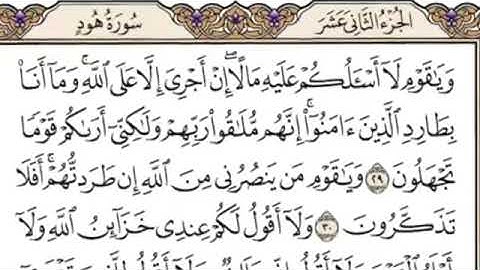 الجُزءُ الثَّانِي عَشَرَ
سُورَةُ هُودٍ
وَيَٰقَوْمِ لَآ أَسْـَٔلُكُمْ عَلَيْهِ مَالًا ۖ إِنْ أَجْرِىَ إِلَّا عَلَى ٱللَّهِ ۚ وَمَآ أَنَا۠
بِطَارِدِ ٱلَّذِينَ ءَامَنُوٓا۟ ۚ إِنَّهُم مُّلَٰقُوا۟ رَبِّهِمْ وَلَٰكِنِّىٓ أَرَىٰكُمْ قَوْمًا
تَجْهَلُونَ ٢٩ وَيَٰقَوْمِ مَن يَنصُرُنِى مِنَ ٱللَّهِ إِن طَرَدتُّهُمْ ۚ أَفَلَا
تَذَكَّرُونَ ٣٠ وَلَآ أَقُولُ لَكُمْ عِندِى خَزَآئِنُ ٱللَّهِ وَلَآ